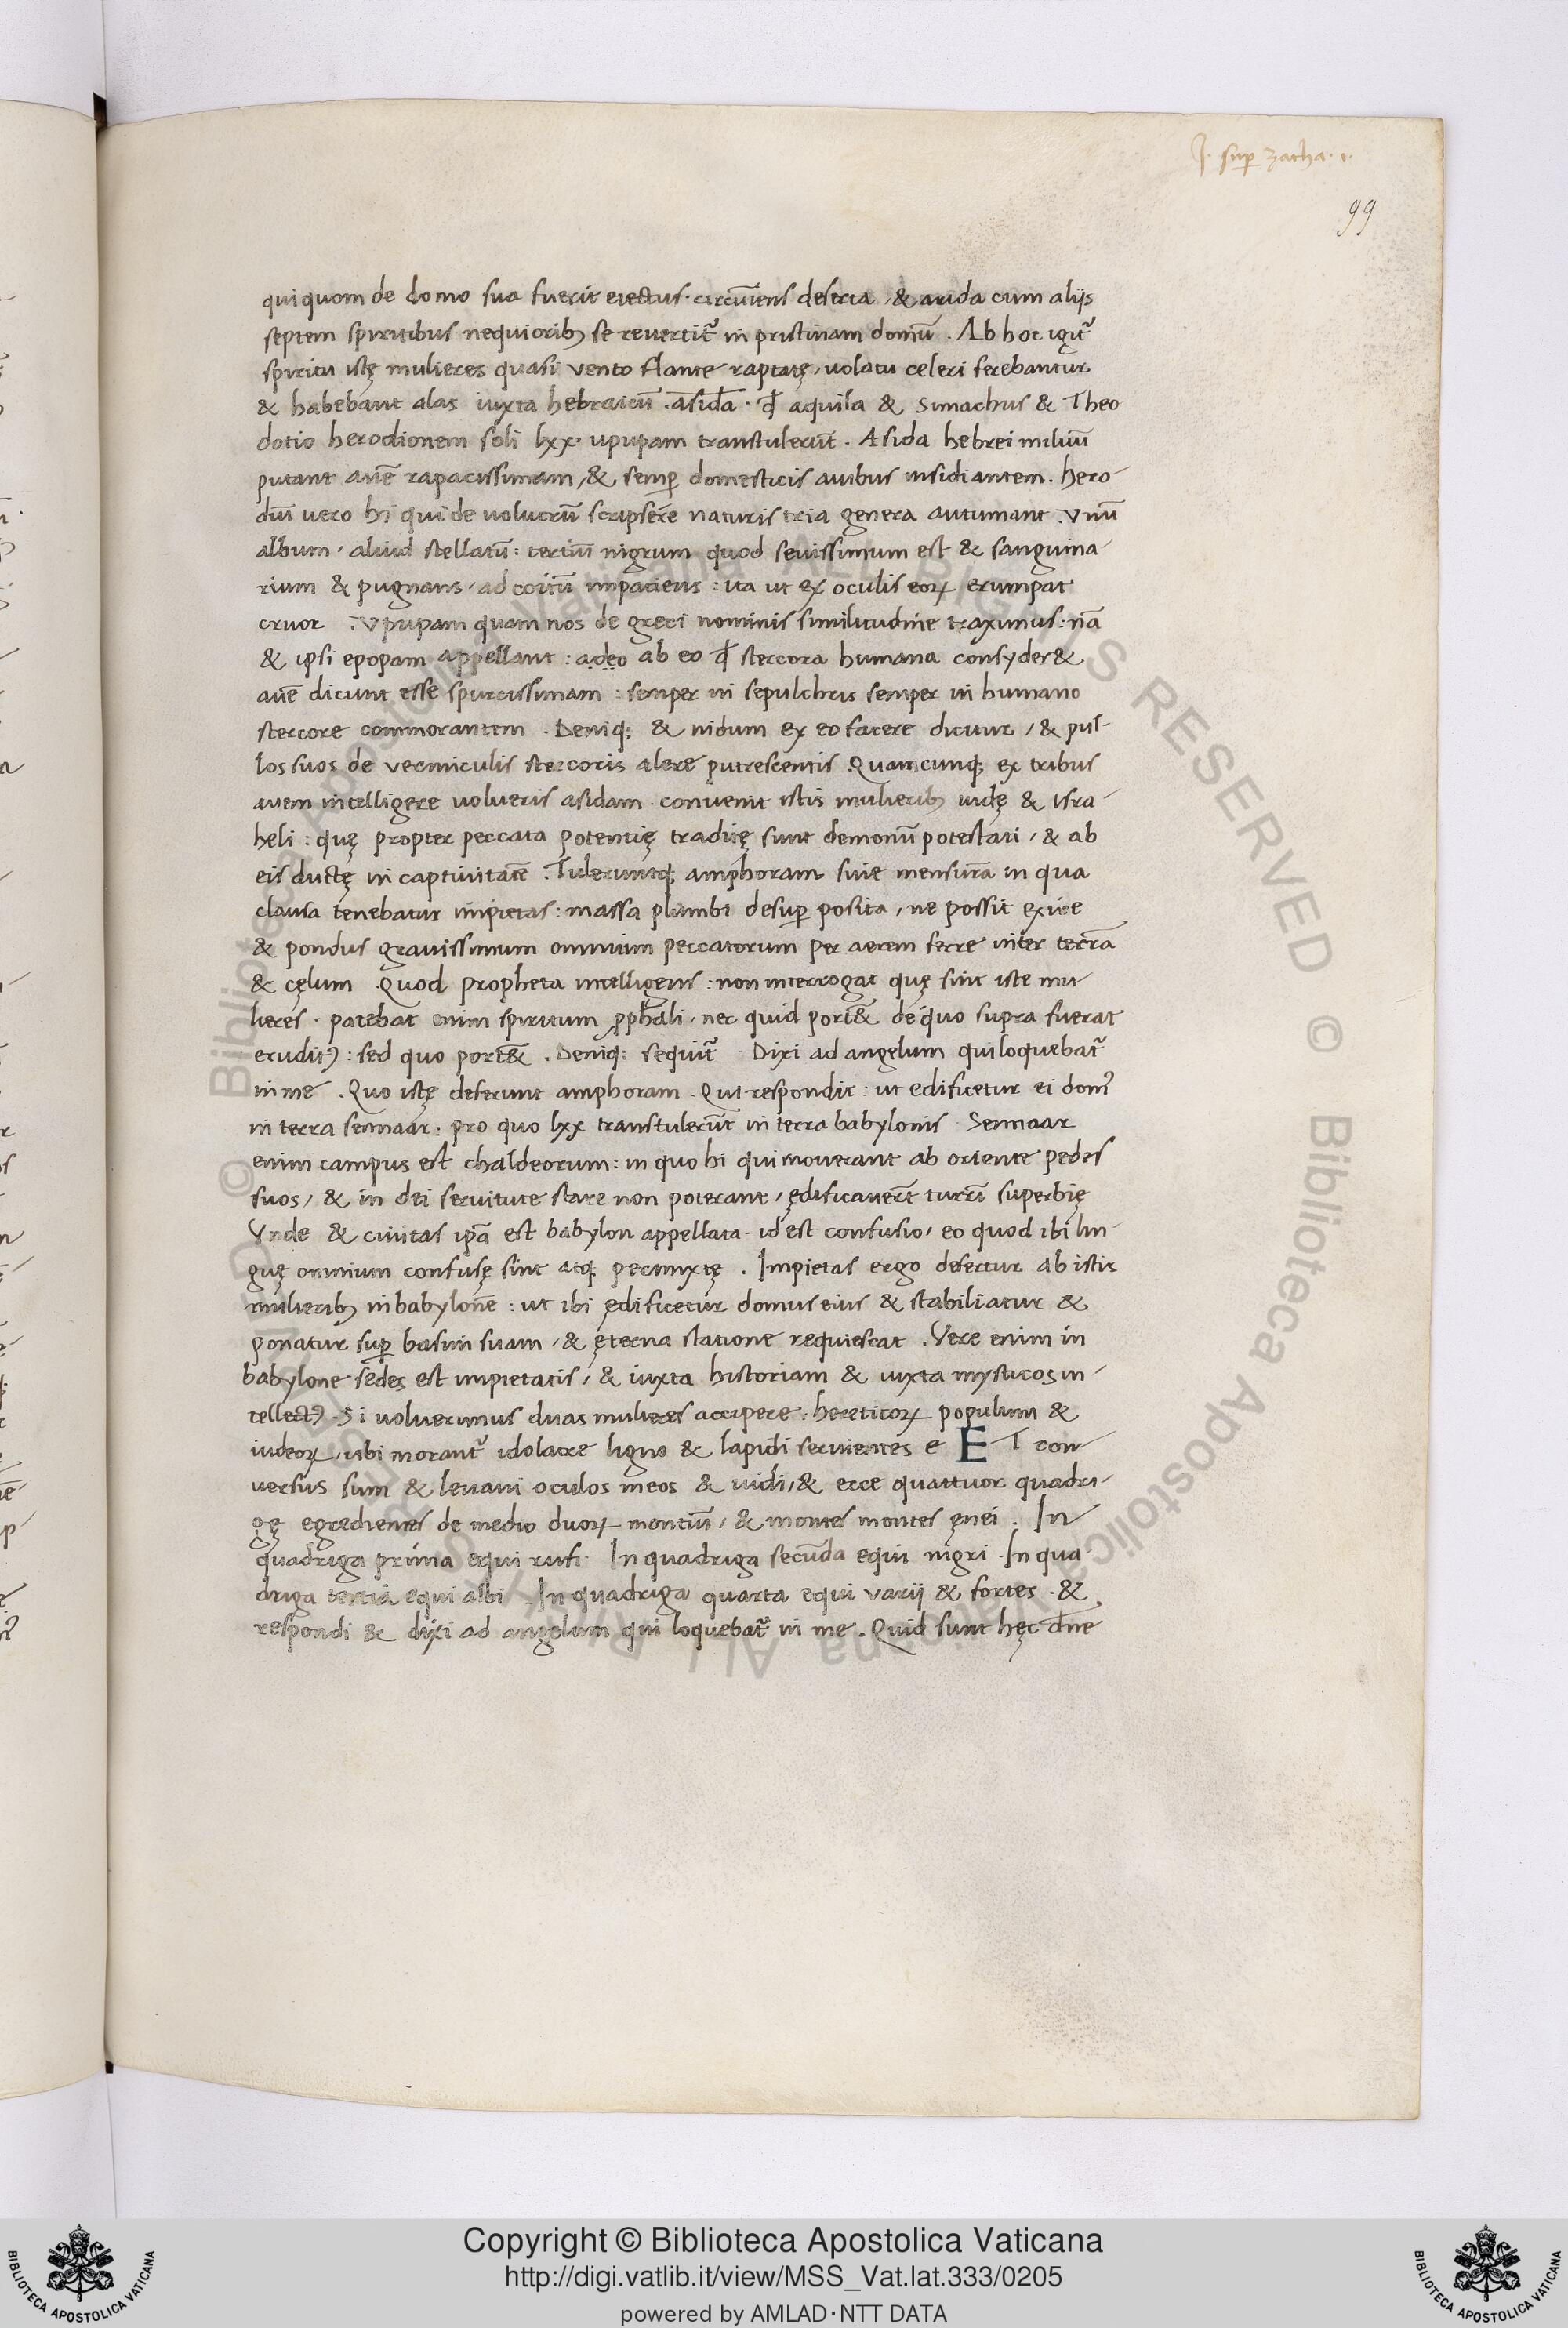 J. sup̱ zacha. 1.
99
qui quom de domo sua fuerit eiectus. circūiens deserta, & arida cum alijs
septem spiritibus nequiorib; se reuertit᷑ in pristinam domū. Ab hoc igit᷑
spiritu istę mulieres quasi vento flante raptatę, uolatu celeri ferebantur
& habebant alas iuxta hebraicū .asida. qđ aquila & Simachus & Theo
dotio herodionem soli lxx. upupam transtulerūt. Asida hebrei miluū
putant auē rapacissimam, & semp̱ domesticis auibus insidiantem. hero-
diū uero hi qui de uolucrū scripsere naturis tria genera autumant. Vnū
album, aliud stellatū: tertiū nigrum quod seuissimum est & sanguina-
rium & pugnans, ad coitū impatiens: ita ut ex oculis eoꝝ erumpat
cruor. Vpupam quam nos de greci nominis similitudine traximus: nā
& ipsi epopam appellant: adeo ab eo qđ stercora humana consyder&
auē dicunt esse spurcissimam: semper in sepulchris semper in humano
stercore commorantem. Deniq; & nidum ex eo facere dicitur, & pul-
los suos de vermiculis stercoris alere putrescentis. Quamcunq; ex tribus
auem intelligere uolueris asidam. conuenit istis mulierib; iudę & isra-
heli: quę propter peccata potentię traditę sunt demonū potestati, & ab
eis ductę in captiuitatē. Tuleruntq; amphoram siue mensurā in qua
clausa tenebatur impietas: massa plumbi desup̱ posita, ne possit exire
& pondus grauissimum omnium peccatorum per aerem ferre inter terrā
& cęlum. Quod propheta intelligens: non interrogat quę sint iste mu-
lieres. patebat enim spiritum ꝓph̄ali, nec quid port& de quo supra fuerat
erudit⁹: sed quo port&. Deniq; sequit᷑. Dixi ad angelum qui loquebat᷑
in me. Quo istę deferunt amphoram. Qui respondit: ut edificetur ei dom⁹
in terra sennaar: pro quo lxx transtulerūt in terra babylonis. Sennaar
enim campus est chaldeorum: in quo hi qui mouerant ab oriente pedes
suos, & in dei seruitute stare non poterant, ędificauerūt turrī superbię
Vnde & ciuitas ip̄a est babylon appellata. id est confusio, eo quod ibi lin-
guę omnium confusę sint atq; permixtę. Impietas ergo defertur ab istis
mulierib; in babylonē: ut ibi ędificetur domus eius & stabiliatur &
ponatur sup̱ basim suam, & ęterna statione requiescat. Vere enim in
babylone sedes est impietatis, & iuxta historiam & iuxta mysticos in-
tellect⁹. Si uoluerimus duas mulieres accipere: hereticoꝝ populum &
iudeoꝝ, ubi morant᷑ idolatre ligno & lapidi seruientes e ET con-
uersus sum & leuaui oculos meos & uidi, & ecce quattuor quadri-
gę egredientes de medio duoꝝ montiū, & montes montes ęnei. In
quadriga prima equi rufi. In quadriga secūda equi nigri. In qua-
driga tertia equi albi. In quadriga quarta equi varij & fortes. &
respondi & dixi ad angelum qui loquebat᷑ in me. Quid sunt hęc dn̄e
© Biblioteca Apostolica Vaticana ALL RIGHTS RESERVED
BIBLIOTECA APOSTOLICA VATICANA
Copyright © Biblioteca Apostolica Vaticana
http://digi.vatlib.it/view/MSS_Vat.lat.333/0205
powered by AMLAD·NTT DATA
BIBLIOTECA APOSTOLICA VATICANA